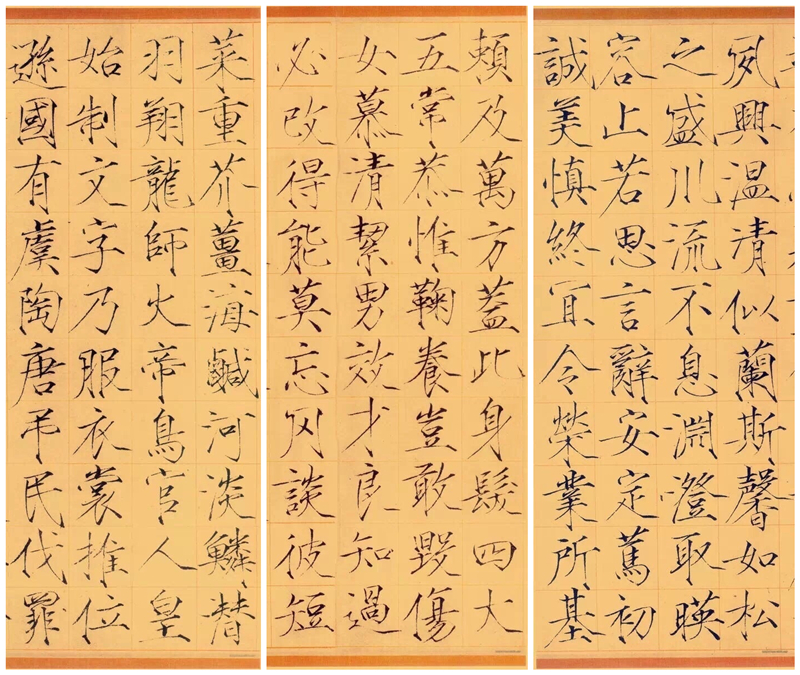 菜重芥薑海鹹河淡鱗替
羽翔龍師火帝鳥官人皇
始制文字乃服衣裳推位
遜國有虞陶唐弔民伐罪
賴及萬方蓋此身髮四大
五常恭惟鞠養豈敢毀傷
女慕清絜男效才良知過
必改得能莫忘罔談彼短
夙興温清似蘭斯馨如松
之盛川流不息淵澄取暎
容止若思言辭安定篤初
誠美慎終宜令榮業所基